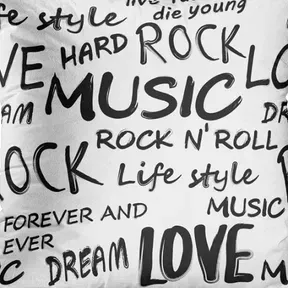 fe style
die young
HARD ROCK
VE
LO
MUSIC
AM
DR
ROCK N'ROLL
OCK
Life style
FOREVER AND
EVER
MUSIC
C
DREAM LOVE
M